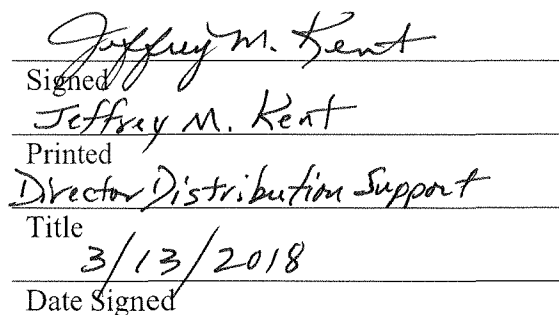 Jeffrey M. Kent
Signed
Jeffrey M. Kent
Printed
Director Distribution Support
Title
3/13/2018
Date Signed